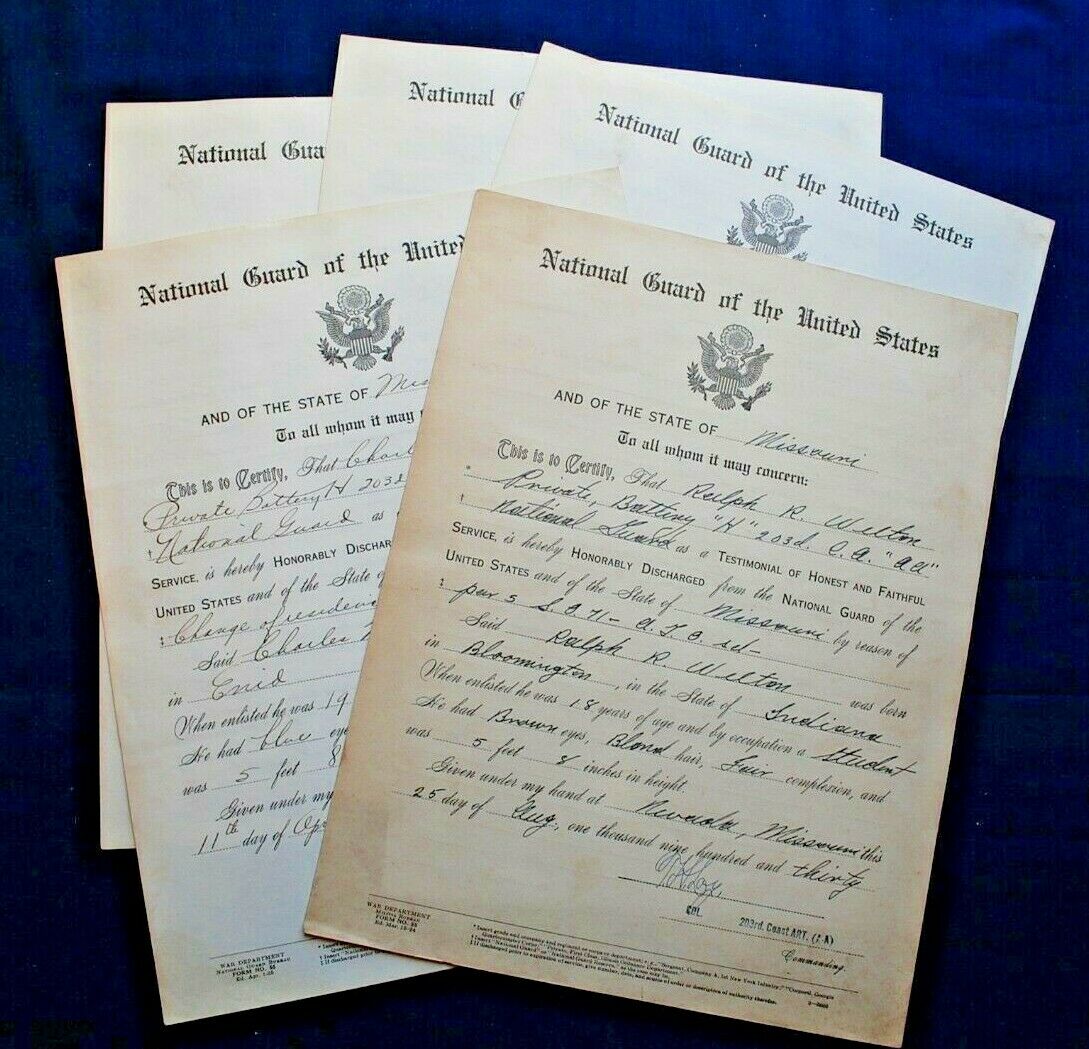 National Gua
National G
National Guard of the United States
National Guard of the United
AND OF THE STATE OF Mis
To all whom it may
This is to Certify, That Charl
Private Battery H 203d
National Guard as
SERVICE, is hereby HONORABLY DISCHARGED
UNITED STATES and of the State of
Change of residence
Said Charles
in Enid
When enlisted he was 19
He had blue eye
was 5 feet 8
Given under my
11th day of Apr
WAR DEPARTMENT
National Guard Bureau
FORM NO. 55
National Guard of the United States
AND OF THE STATE OF Missouri
To all whom it may concern:
This is to Certify, That Ralph R. Welton
* Private, Battery "H" 203d. C.A. "AA"
† National Guard as a TESTIMONIAL OF HONEST AND FAITHFUL
SERVICE, is hereby HONORABLY DISCHARGED from the NATIONAL GUARD of the
UNITED STATES and of the State of Missouri by reason of
‡ par 5 S.O 71-
Said Ralph R. Welton was born
in Bloomington, in the State of Indiana
When enlisted he was 18 years of age and by occupation a Student
He had Brown eyes, Blond hair, Fair complexion, and
was 5 feet 8 inches in height.
Given under my hand at Nevada, Missouri this
25 day of Aug, one thousand nine hundred and thirty
COL. 203rd. Coast ART. (AA)
Commanding.
WAR DEPARTMENT
Militia Bureau
FORM NO. 55